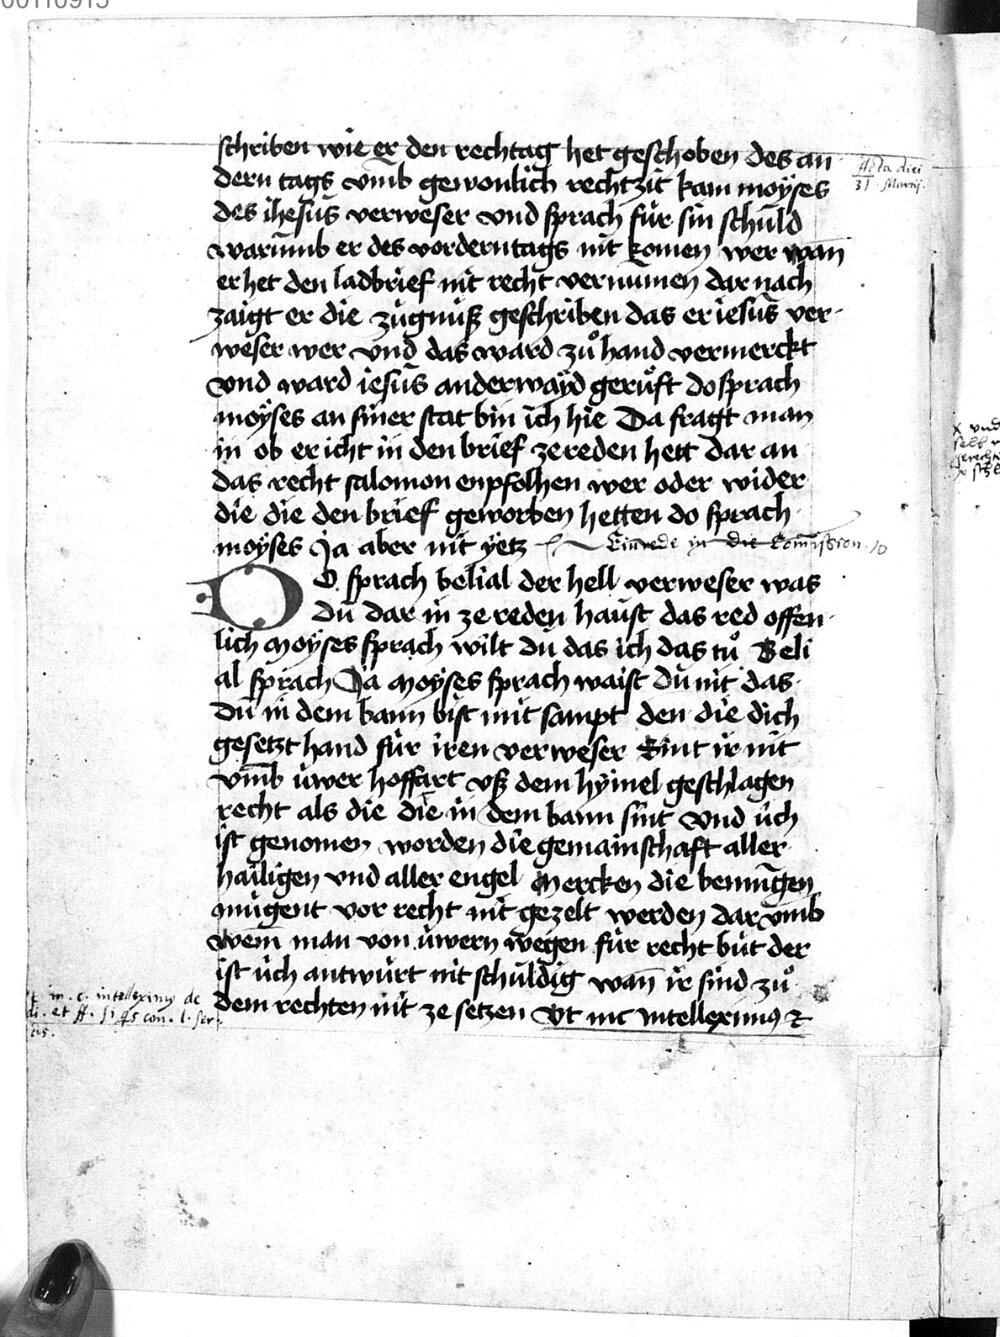 00110915
schriben wie er den rechtag het geschoben des an
dern tags vmb gewonlich rechtzit kam moÿses
Acta diei
31. Marcij.
des ihesus verweser vnd sprach für sin schuld
warumb er des vorderntags nit komen wer wan
er het den ladbrief nit recht vernumen dar nach
zaigt er die zugnuß geschriben das er iesus ver-
weser wer vnd das ward zuͦ hand vermerckt
vnd ward iesus anderwayd geruͦft do sprach
moÿses an siner stat bin ich hie Da fragt man
in ob er icht in den brief ze reden hett dar an
das recht salomon enpfolhen wer oder wider
die die den brief geworben hetten do sprach
moÿses Ja aber nit yetz
Einrede in die Commission
DO sprach belial der hell verweser was
du dar in ze reden haust das red offen
lich Moÿses sprach wilt du das ich das tuͦ Beli
al sprach Ja Moÿses sprach waist du nit das
du in dem bann bist mit sampt den die dich
gesetzt hand für iren verweser Sint ir nit
vmb uwer hoffart vß dem hymel geschlagen
recht als die die in dem bann sint vnd üch
ist genomen worden die gemainschaft aller
hailigen vnd aller engel Mercken die
mugent vor recht nit gezelt werden dar vmb
wem man von uwern wegen für recht büt der
ist üch antwurt nit schuldig wan ir sind zuͦ
dem rechten nit ze setzen Vt in c intelleximus
in. c. intelleximus de
et ff. si qs con. l. ser
uis.
x vnd